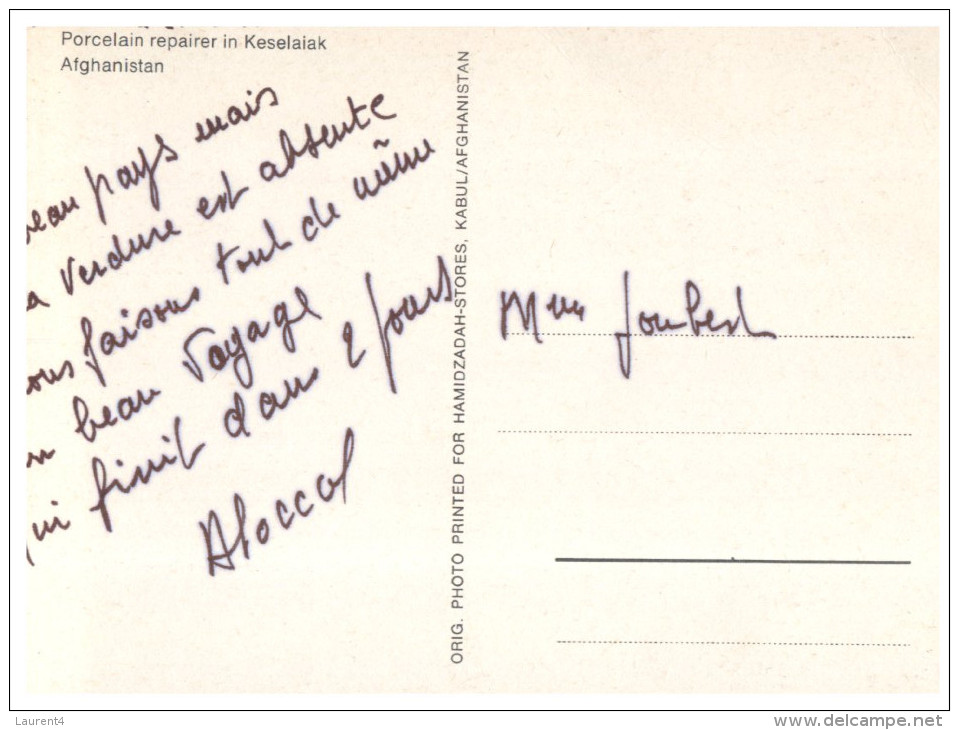 Porcelain repairer in Keselaiak
Afghanistan
beau pays mais
la verdure est absente
nous faisons tout de même
un beau voyage
qui finit dans 2 jours
ORIG. PHOTO PRINTED FOR HAMIDZADAH-STORES, KABUL/AFGHANISTAN
Mme Joubert
Laurent4
www.delcampe.net